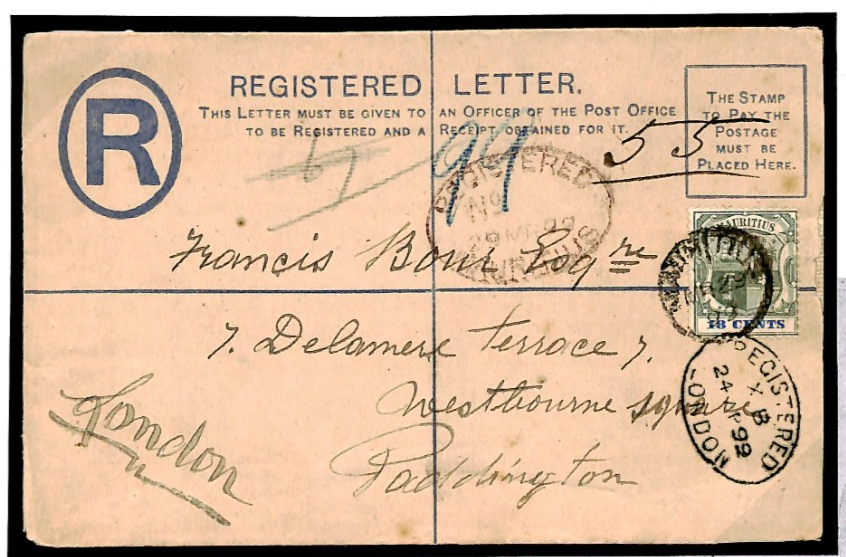 R
REGISTERED LETTER.
THIS LETTER MUST BE GIVEN TO AN OFFICER OF THE POST OFFICE
TO BE REGISTERED AND A RECEIPT OBTAINED FOR IT.
THE STAMP
TO PAY THE
POSTAGE
MUST BE
PLACED HERE.
99
55
REGISTERED
No
29 MR 99
MAURITIUS
MAURITIUS
18 CENTS
MAURITIUS
MR 29
99
Francis Bour Esqre
7. Delamere terrace 7.
Westbourne square
Paddington
London
REGISTERED
X B
24 AP 99
LONDON